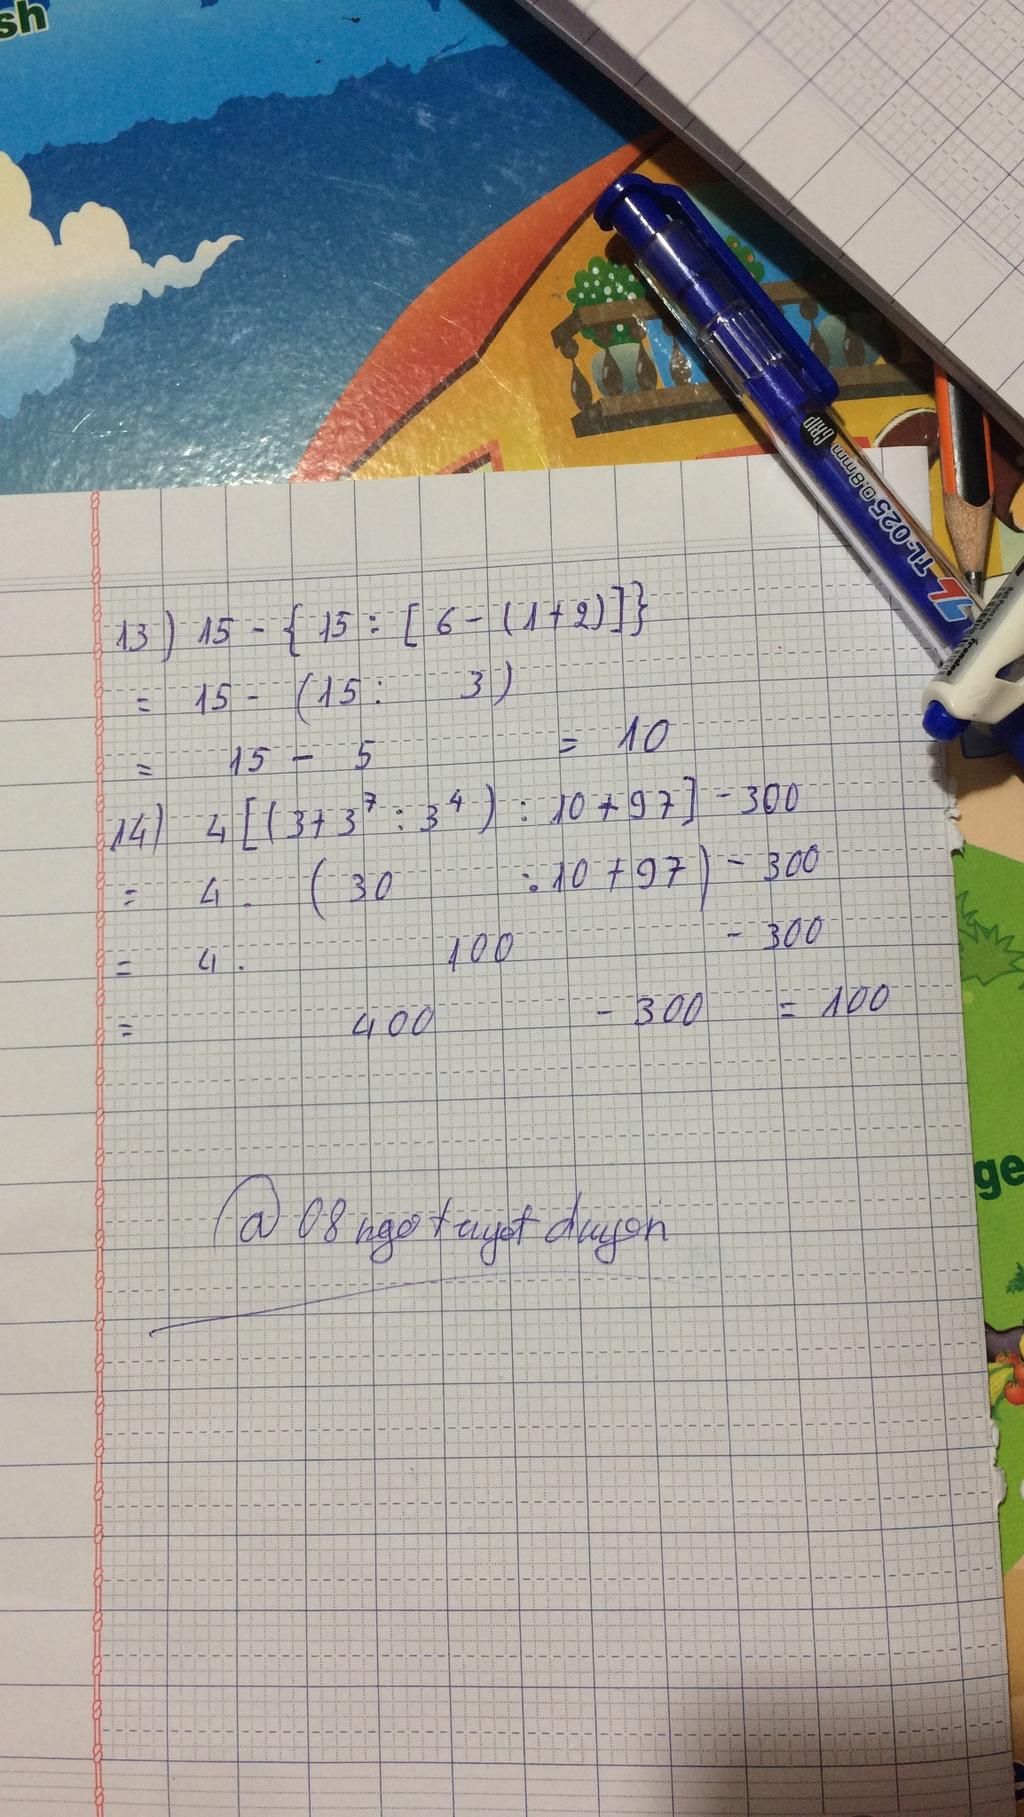 sh
GRIP
TL-025 0.8mm
13) 15 - { 15 : [ 6 - (1+2)]}
= 15 - (15 : 3)
= 15 - 5 = 10
14) 4[(3+3⁷ : 3⁴) : 10 + 97] - 300
= 4. (30 : 10 + 97) - 300
= 4. 100 - 300
= 400 - 300 = 100
ge
@ 08 ngotuyetduyen